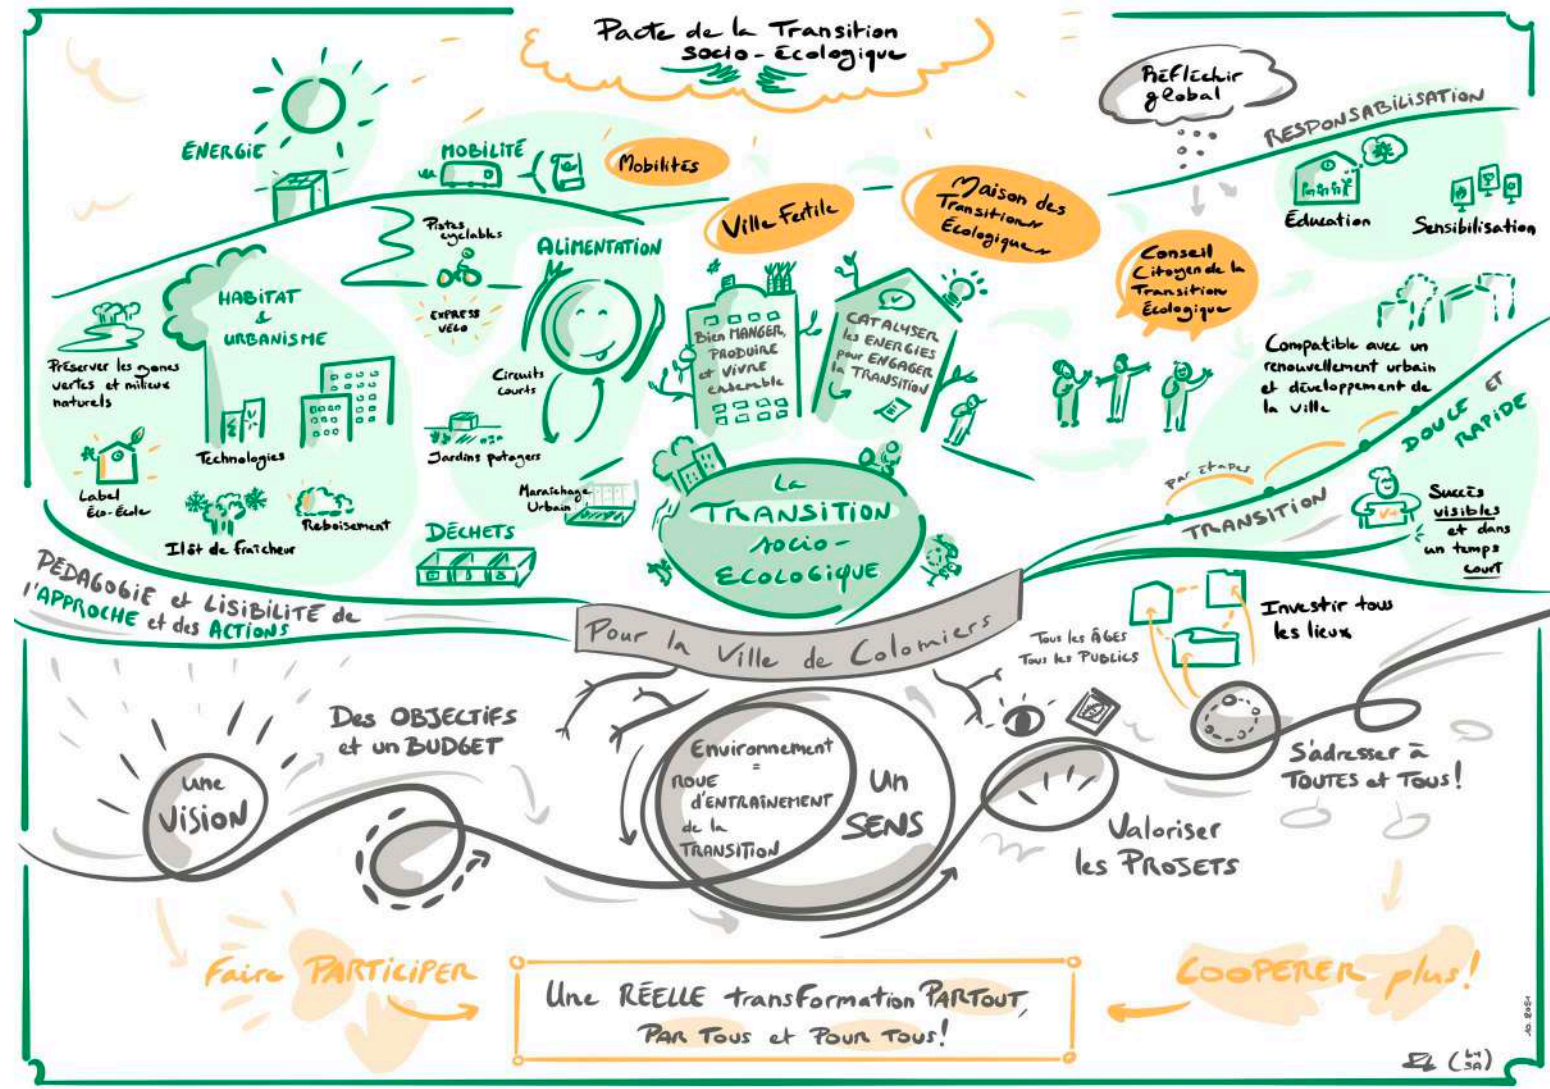 Pacte de la Transition
socio-Écologique
RÉFLÉCHIR
global
RESPONSABILISATION
ÉNERGIE
MOBILITÉ
Mobilités
Ville Fertile
Maison des
Transitions
Écologiques
Conseil
Citoyen de la
Transition
Écologique
Éducation
Sensibilisation
Pistes
cyclables
EXPRESS
VÉLO
ALIMENTATION
HABITAT
&
URBANISME
Préserver les zones
vertes et milieux
naturels
Technologies
Label
Éco-École
Ilôt de fraîcheur
Reboisement
Circuits
courts
Jardins potagers
Maraîchage
Urbain
DÉCHETS
Bien MANGER,
PRODUIRE
et VIVRE
ensemble
CATALYSER
les ENERGIES
pour ENGAGER
la TRANSITION
Compatible avec un
renouvellement urbain
et développement de
la ville
par étapes
TRANSITION
DOUCE ET
RAPIDE
Succès
visibles
et dans
un temps
court
La
TRANSITION
socio-
ECOLOGIQUE
Pour la Ville de Colomiers
PÉDAGOGIE et LISIBILITÉ de
l'APPROCHE et des ACTIONS
Tous les ÂGES
Tous les PUBLICS
Investir tous
les lieux
une
VISION
Des OBJECTIFS
et un BUDGET
Environnement
=
ROUE
d'ENTRAÎNEMENT
de la
TRANSITION
un
SENS
Valoriser
les PROJETS
S'adresser à
TOUTES et TOUS!
Faire PARTICIPER
Une RÉELLE transformation PARTOUT,
PAR TOUS et POUR TOUS!
COOPERER plus!